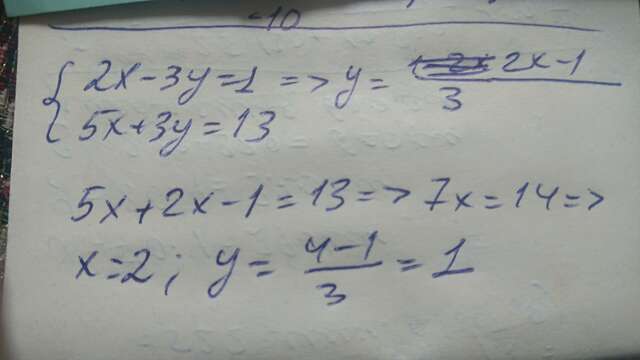 -10
{ 2x-3y=1 => y= 2x-1 / 3
5x+3y=13
5x+2x-1=13=> 7x=14=>
x=2; y= 4-1 / 3 = 1